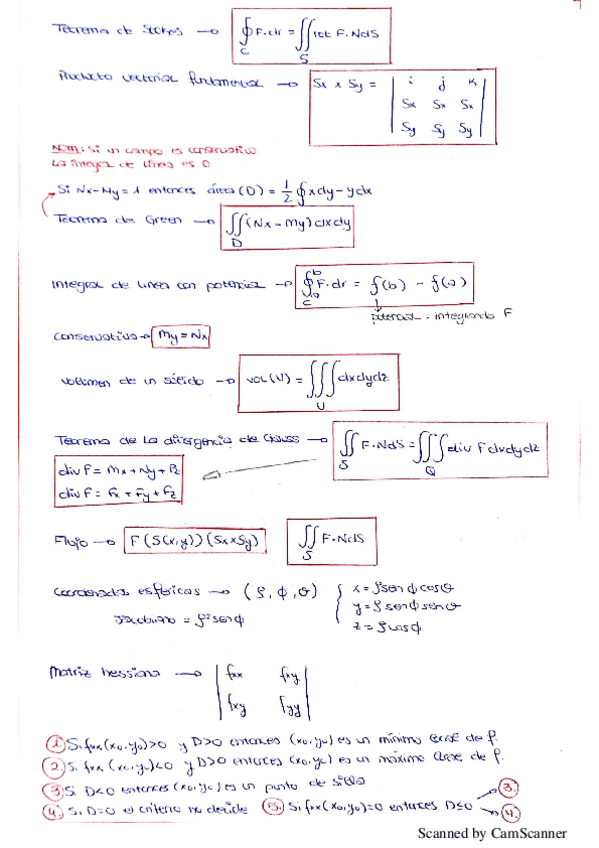 Teorema de Stokes → ∮_C F·dr = ∬_S rot F·NdS
Producto vectorial fundamental → Sx x Sy = | i j k |
| Sx Sx Sx |
| Sy Sy Sy |
NOTA: Si un campo es conservativo
La integral de línea es 0
Si Nx-My=1 entonces área(D) = 1/2 ∮ xdy-ydx
Teorema de Green → ∬_D (Nx-My) dxdy
Integral de línea con potencial → ∮_C F·dr = f(b) - f(a)
potencial : integrando F
Conservativo → My=Nx
Volumen de un sólido → vol(V) = ∭_U dxdydz
Teorema de la divergencia de Gauss → ∬_S F·NdS = ∭_Q div F dxdydz
div F = Mx+Ny+Pz
div F = Fx+Fy+Fz
Flujo → F(S(x,y))(SxxSy) ∬_S F·NdS
Coordenadas esféricas → (ρ, φ, θ) { x=ρsenφcosθ
y=ρsenφsenθ
z=ρcosφ
Jacobiano = ρ²senφ
Matriz hessiana → | fxx fxy |
| fxy fyy |
1. Si fxx(x0,y0)>0 y D>0 entonces (x0,y0) es un mínimo local de f.
2. Si fxx(x0,y0)<0 y D>0 entonces (x0,y0) es un máximo local de f.
3. Si D<0 entonces (x0,y0) es un punto de silla
4. Si D=0 el criterio no decide 5. Si fxx(x0,y0)=0 entonces D≤0 → 3.
→ 4.
Scanned by CamScanner